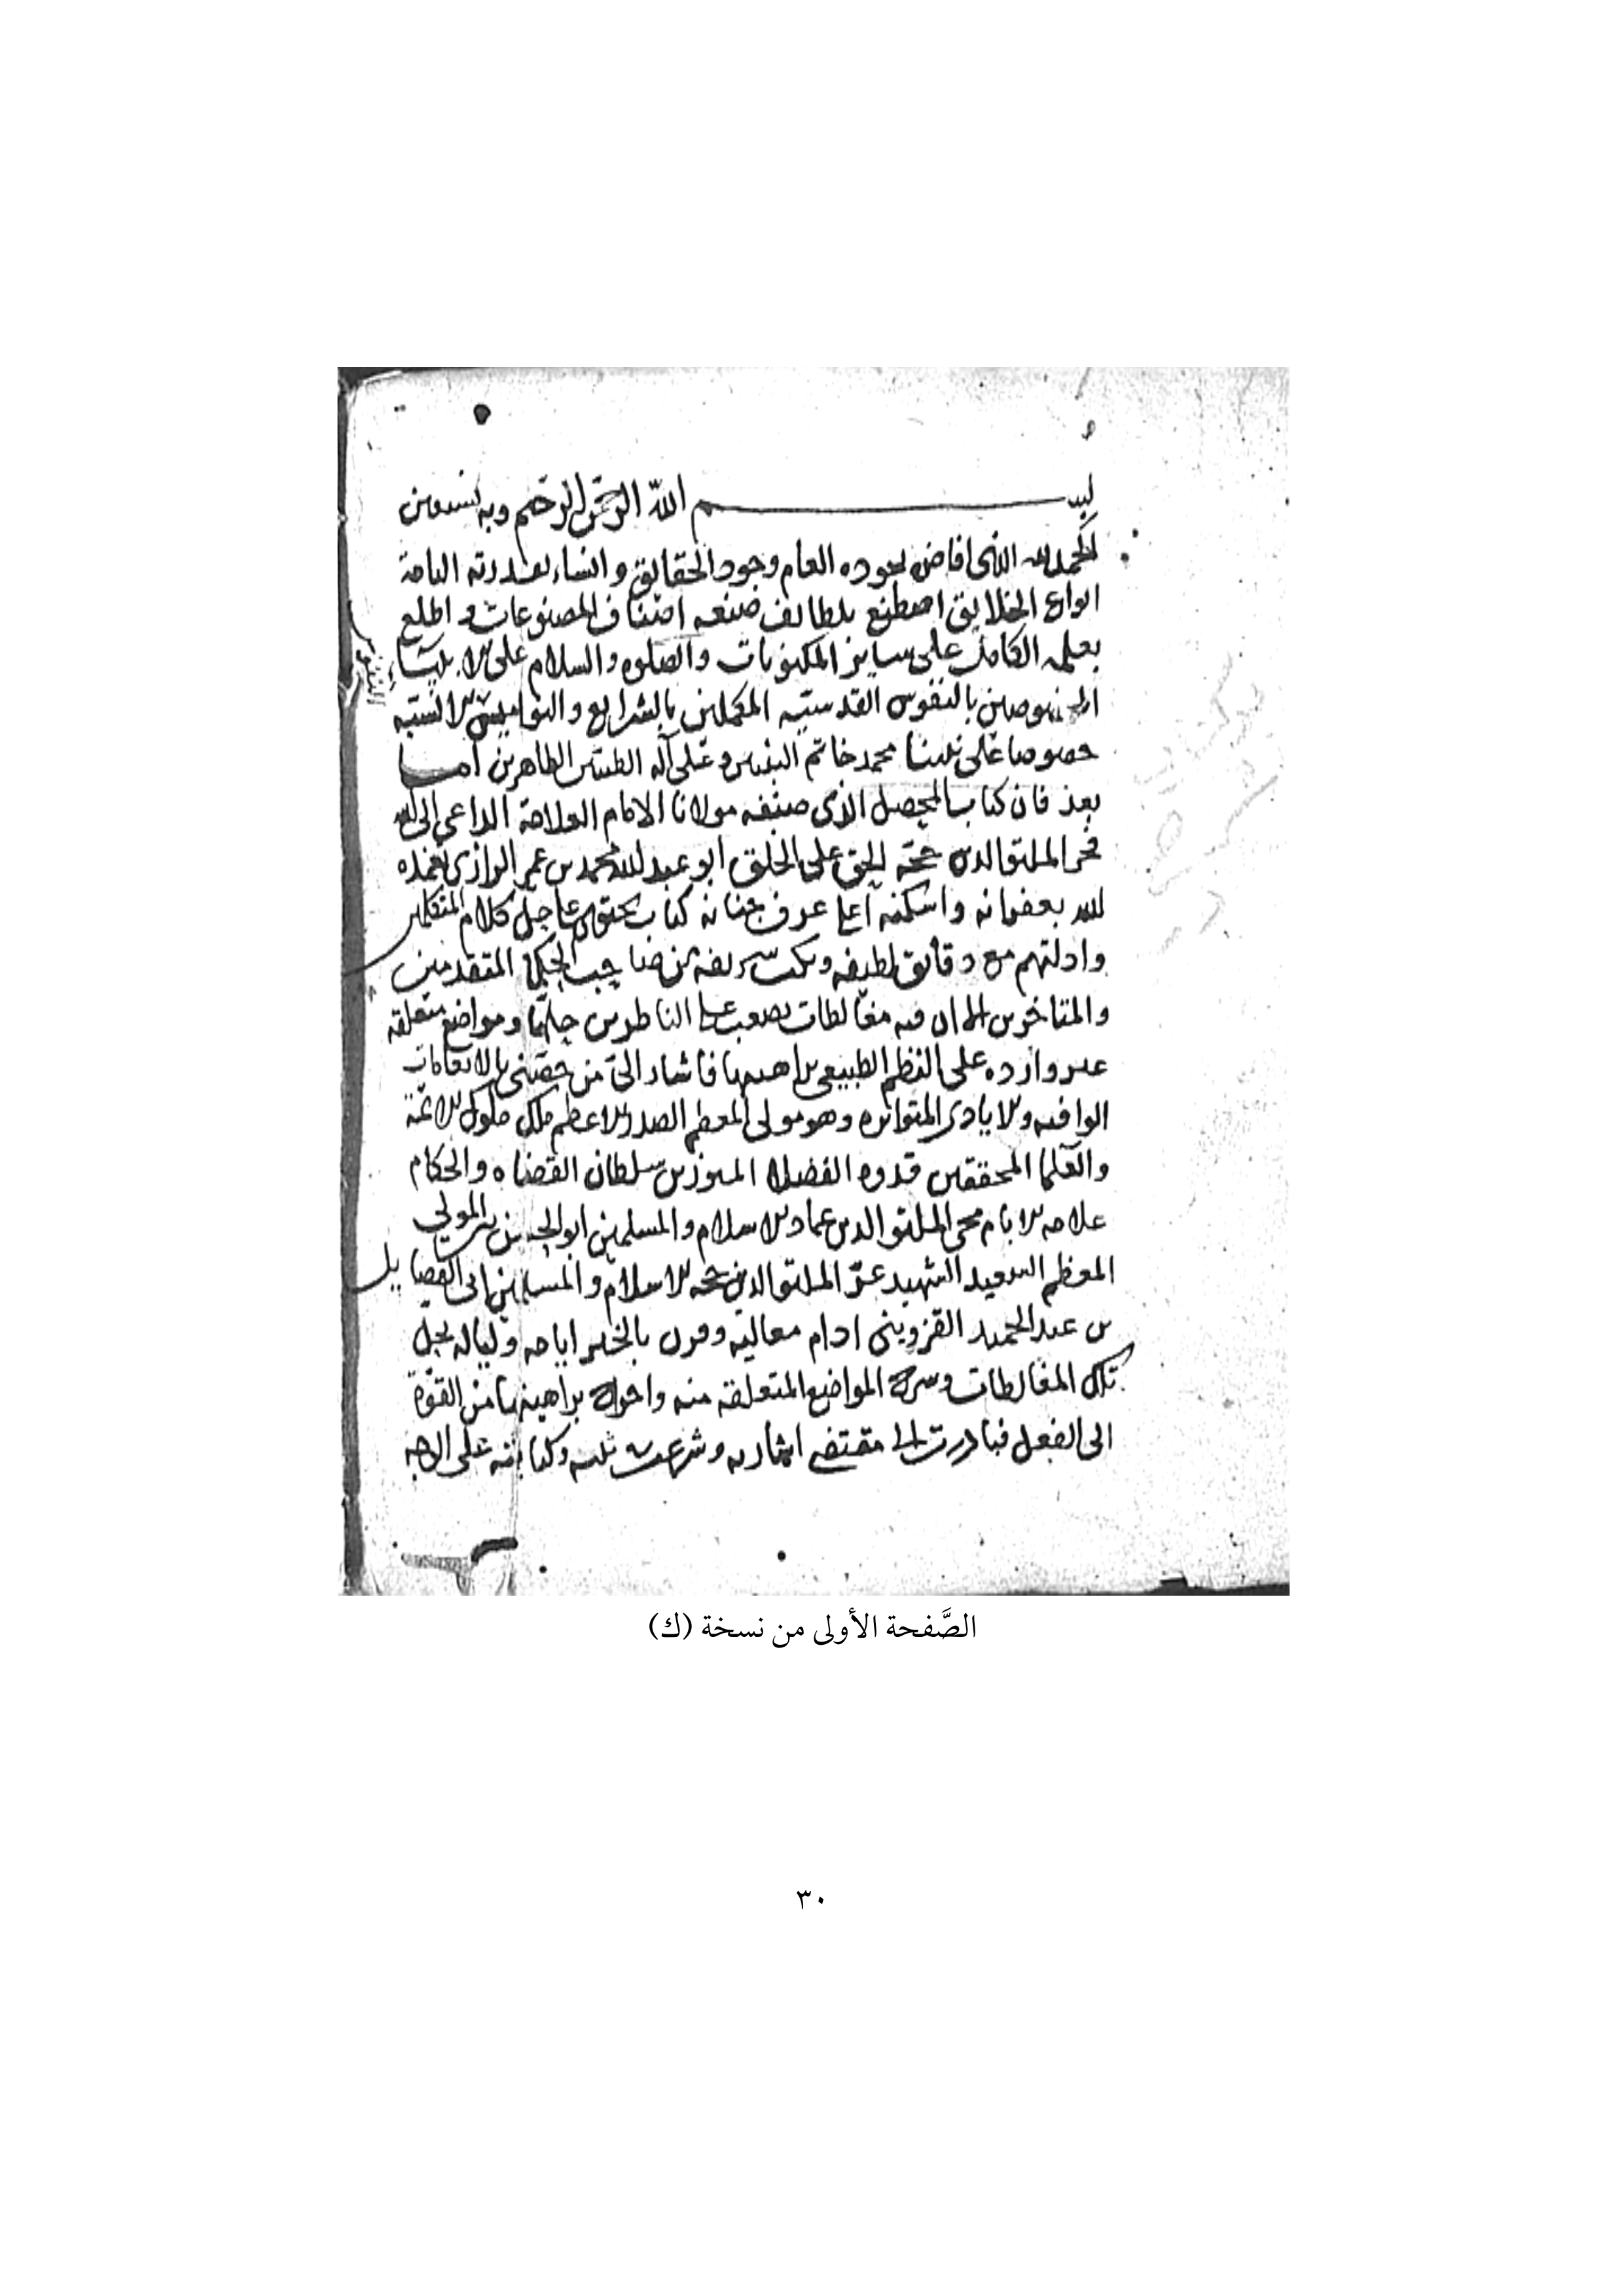 بسم الله الرحمن الرحيم وبه نستعين
الحمد لله الذى افاض بجوده العام وجود الحقايق وانشاء بقدرته التامة
انواع الخلايق اصطنع بلطايف صنعه اصناف المصنوعات و اطلع
بعلمه الكامل على ساير المكنونات والصلوه والسلام على الانبياء
المخصوصين بالنفوس القدسيه المكملين بالشرايع والنواميس الانسيه
خصوصا على نبينا محمد خاتم النبيين وعلى آله الطيبين الطاهرين اما
بعد فان كتاب المحصل الذى صنفه مولانا الامام العلامة الداعى الى الله
فخر الملة والدين حجة الحق على الخلق ابو عبد الله محمد بن عمر الرازى تغمده
الله بغفرانه واسكنه اعلا غرف جنانه كتاب يحتوى على جل كلام المتكلمين
وادلتهم مع دقائق لطيفه ونكت شريفه من مناحب الحكما المتقدمين
والمتاخرين الا ان فيه مغالطات يصعب على الناظرين حلها ومواضع متعلقه
غير وارده على النظم الطبيعى براهينها فاشار الى من خصنى بالانعامات
الوافيه والايادى المتواتره وهو مولى المعظم الصدر الاعظم ملك ملوك الائمة
والعلما المحققين قدوه الفضلا المبرزين سلطان القضاه والحكام
علامه الانام محى الملة والدين عماد الاسلام والمسلمين ابو الحسن بن المولى
المعظم السعيد الشهيد عز الملة والدين حجه الاسلام والمسلمين ابى الفضايل
بن عبد الحميد القزوينى ادام معاليه وقرن بالخير ايامه ولياليه بحل
تلك المغالطات وشرح المواضع المتعلقه منه واخراج براهينها من القوة
الى الفعل فبادرت الى مقتضى اشارته وشرعت فيه وكتابته على الوجه
الصَّفحة الأولى من نسخة (ك)
٣٠